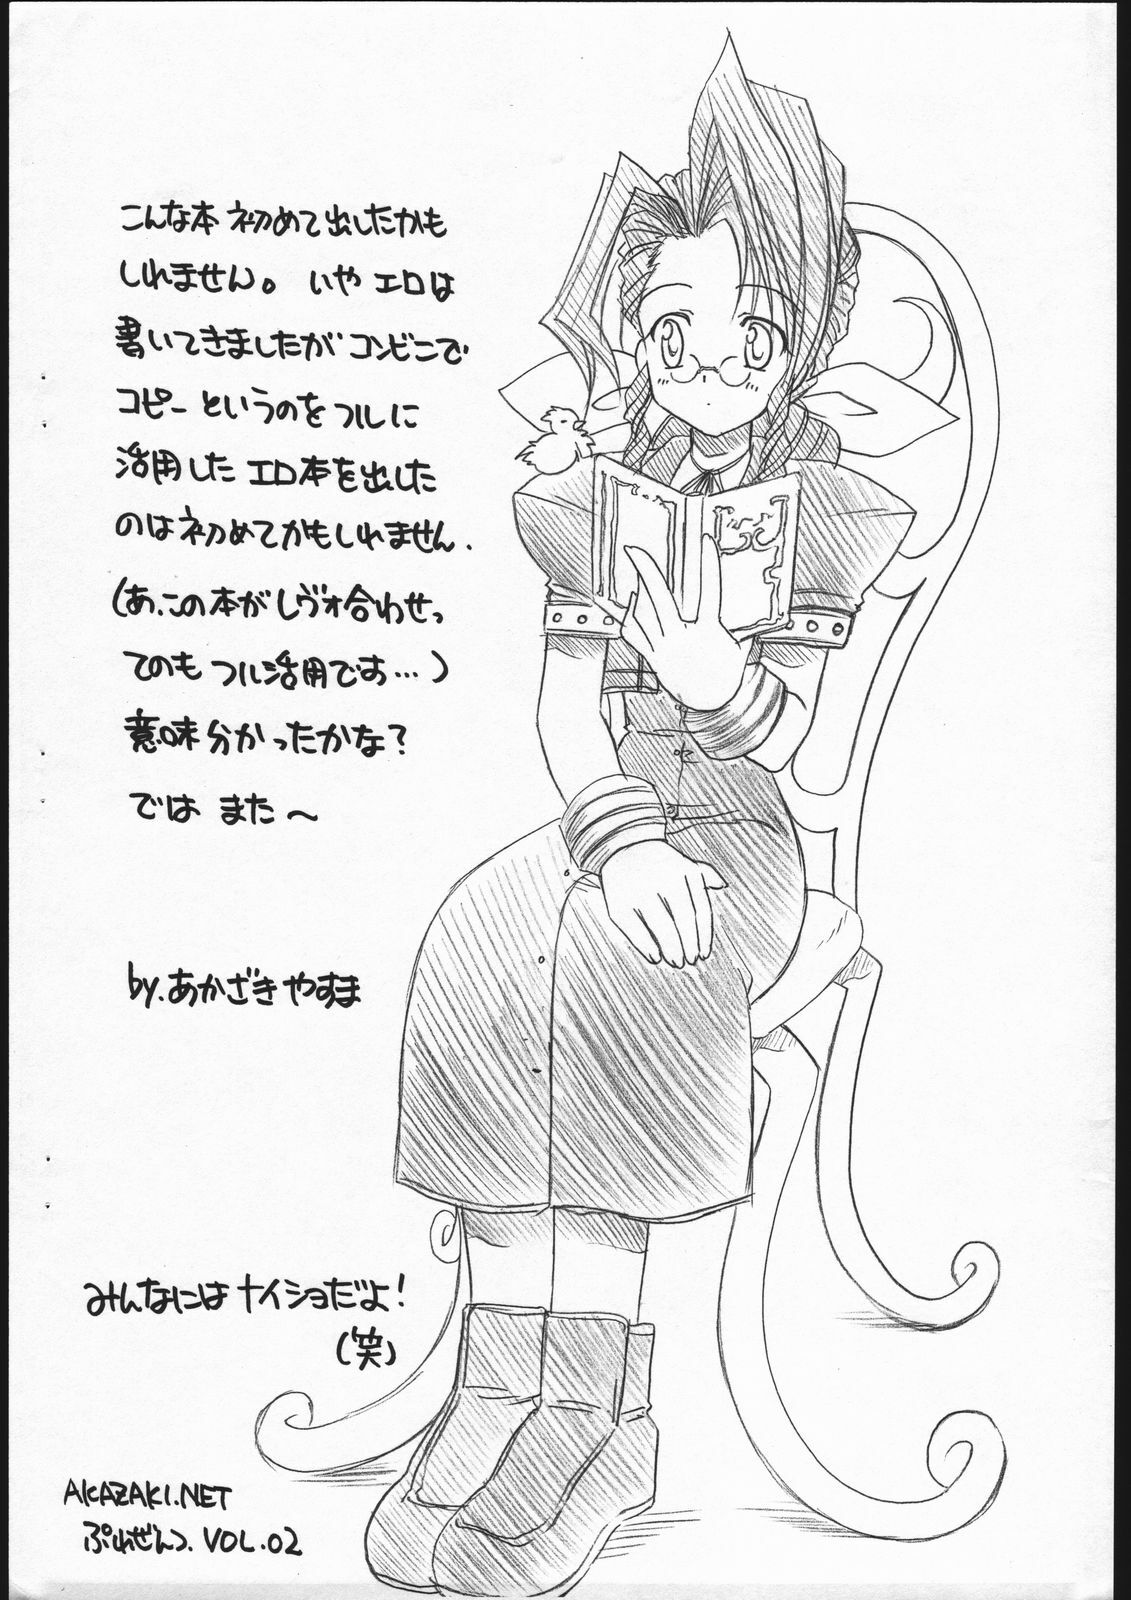 こんな本 初めて出したかも
しれません。 いや エロは
書いてきましたが コンビニで
コピー というのを フルに
活用した エロ本を出した
のは初めてかもしれません.
(あ、この本がレヴォ合わせっ
てのも フル活用です…)
意味分かったかな?
では また〜
by.あかざき やすま
みんなには ナイショだよ!
(笑)
AKAZAKI.NET
ぷれぜんつ. VOL.02